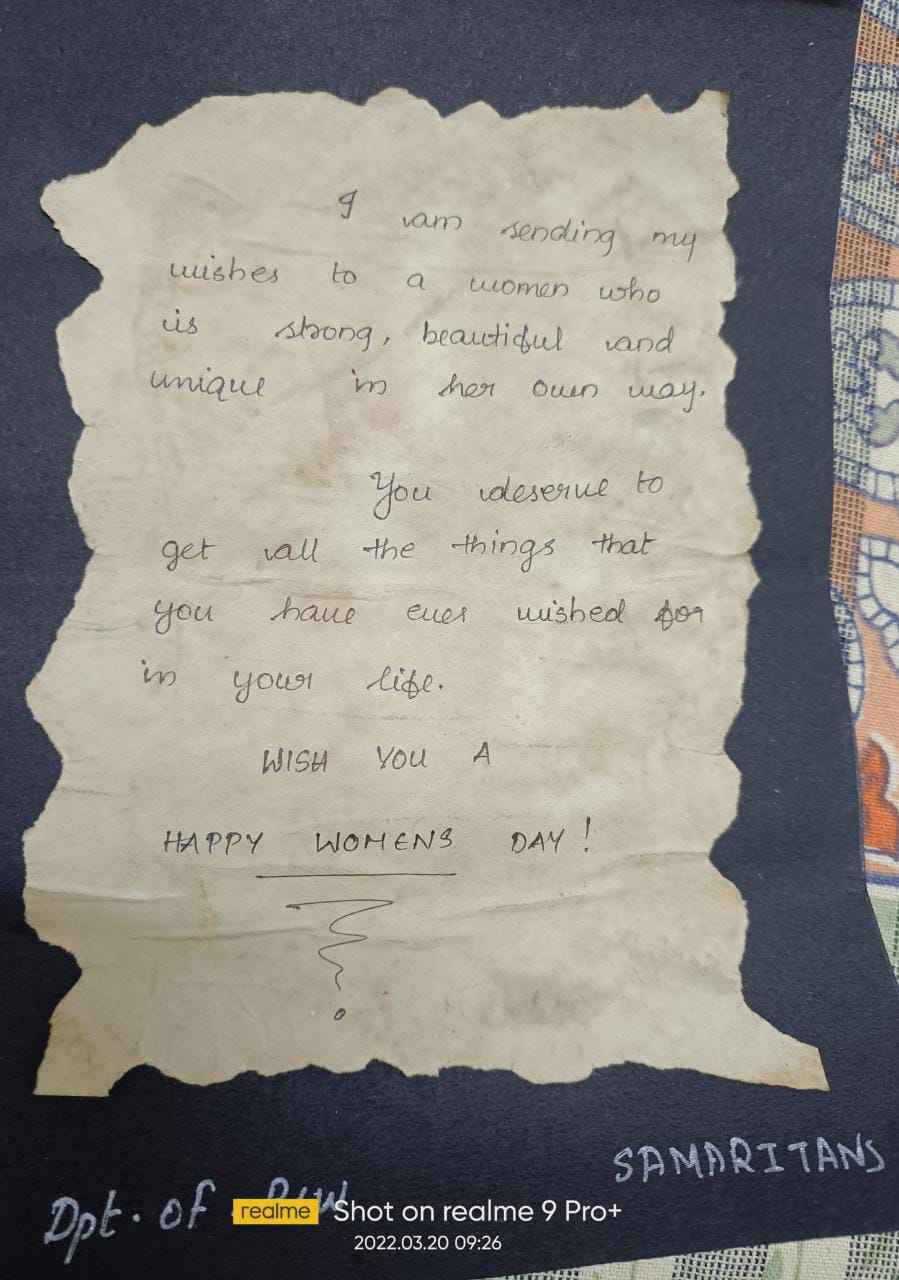 I am sending my
wishes to a women who
is strong, beautiful and
unique in her own way.
You deserve to
get all the things that
you have ever wished for
in your life.
WISH YOU A
HAPPY WOMENS DAY!
SAMARITANS
Dpt. of
realme Shot on realme 9 Pro+
2022.03.20 09:26